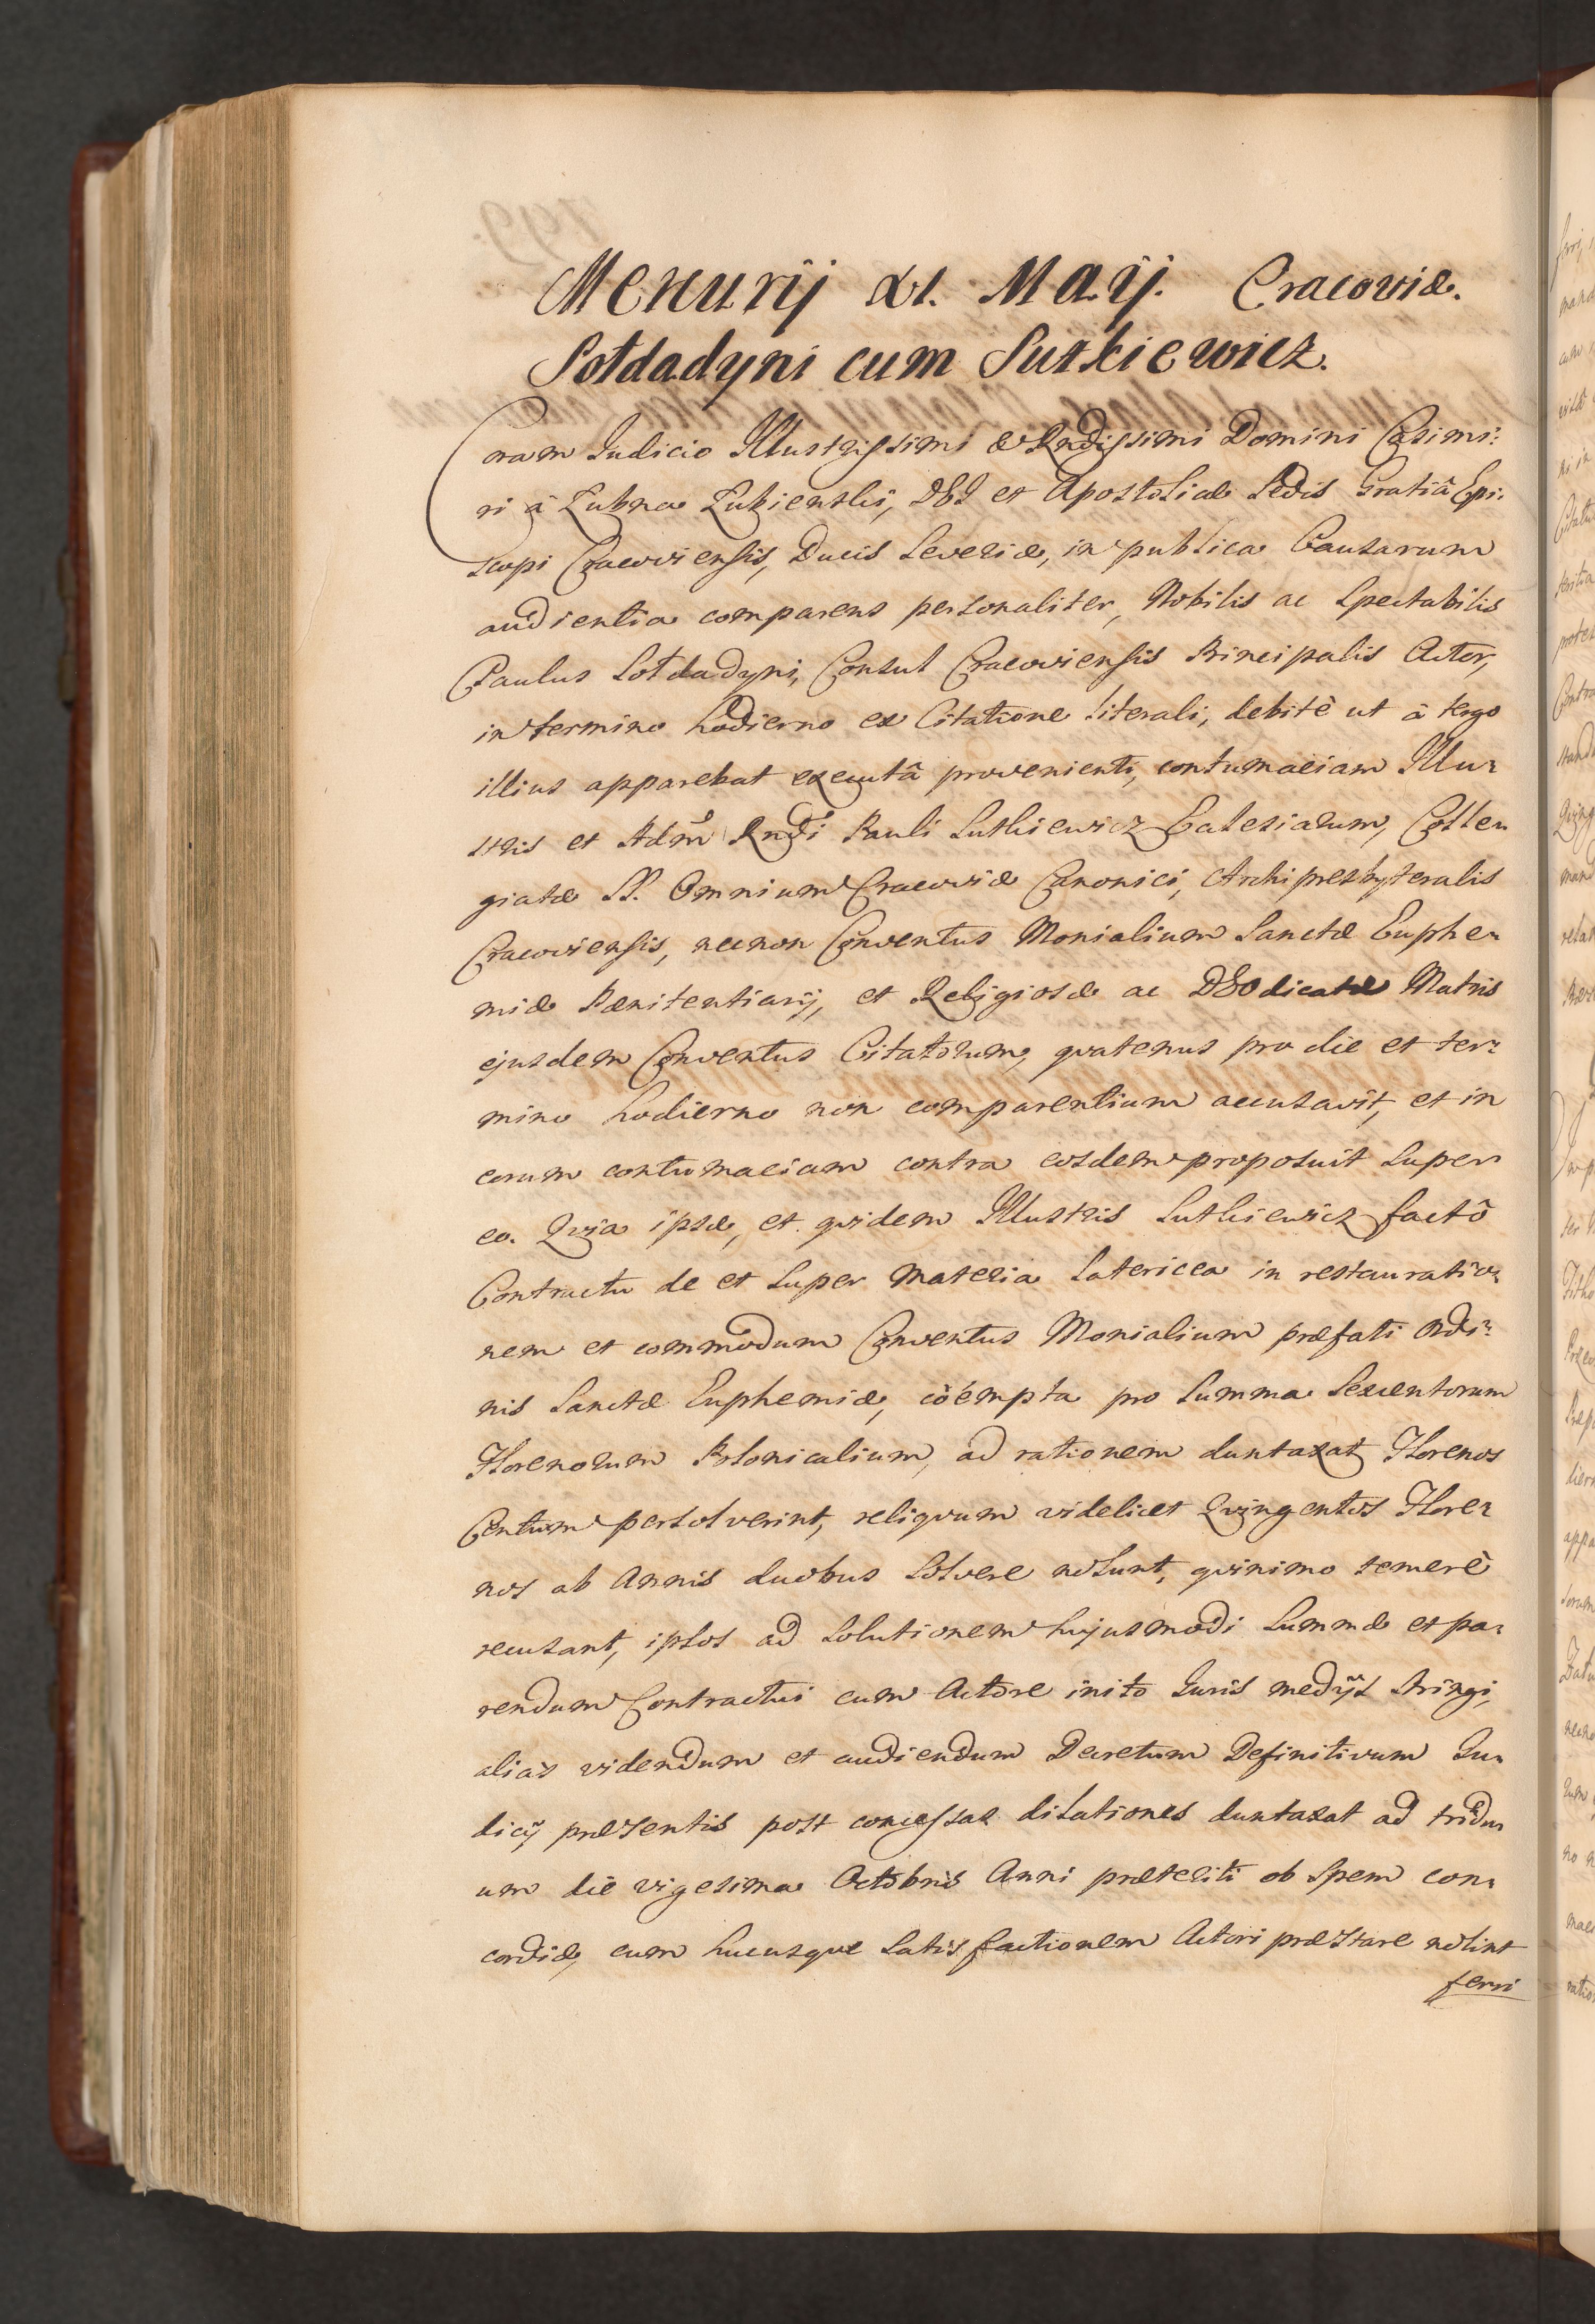 Mercurij XI. Maij. Cracoviæ.
Sołdadyni cum Sutkiewicz.
Coram Judicio Illustrissimi & Rndissimi Domini Casimi:
ri à Łubna Łubienski, DEI et Apostolicæ Sedis Gratiâ Epi:
scopi Cracoviensis, Ducis Severiæ, in publica Causarum
audientia comparens personaliter, Nobilis ac Spectabilis
Paulus Sołdadyni, Consul Cracoviensis Principalis Actor,
in termino hodierno ex Citatione literali, debitè ut à tergo
illius apparebat executâ provenienti, contumaciam Illu:
stris et Adm Rndi Pauli Sutkiewicz Ecclesiarum, Colle:
giatæ SS. Omnium Cracoviæ Canonici, Archipresbyteralis
Cracoviensis, necnon Conventus Monialium Sanctæ Euphe:
miæ Pænitentiarij, et Religiosæ ac DEOdicatæ Matris
ejusdem Conventus Citatorum, qvatenus pro die et ter:
mino hodierno non comparentium accusavit, et in
eorum contumaciam contra eosdem proposuit super
eo. Qvia ipsæ, et qvidem Illustris Sutkiewicz factô
Contractu de et super materia latericea in restauratio:
nem et commodum Conventus Monialium præfati Ordi:
nis Sanctæ Euphemiæ, coëmpta pro summa Sexcentorum
Florenorum Polonicalium, ad rationem duntaxat Florenos
Centum persolverint, reliqvum videlicet Qvingentos Flore:
nos ab Annis duobus solvere nolunt, qvinimo temerè
recusant, ipsos ad solutionem hujusmodi Summæ et pa:
rendum Contractui cum Actore inito Juris medijs stringi,
aliàs videndum et audiendum Decretum Definitivum Ju:
dicij præsentis post concessas dilationes duntaxat ad tridu:
um die vigesima Octobris Anni præteriti ob spem con:
cordiæ, cum hucusqve satisfactionem Actori præstare nolint
ferri